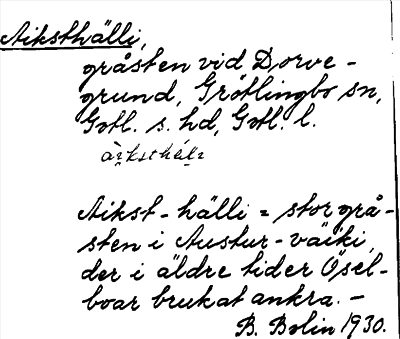 Aiksthälli,
gråsten vid Dorve-
grund, Grötlingbo sn,
Gotl. s. hd, Gotl. l.
Aikst-hälli = stor grå-
sten i Austur-väiki,
der i äldre tider Ösel-
boar brukat ankra. -
B. Bolin 1930.